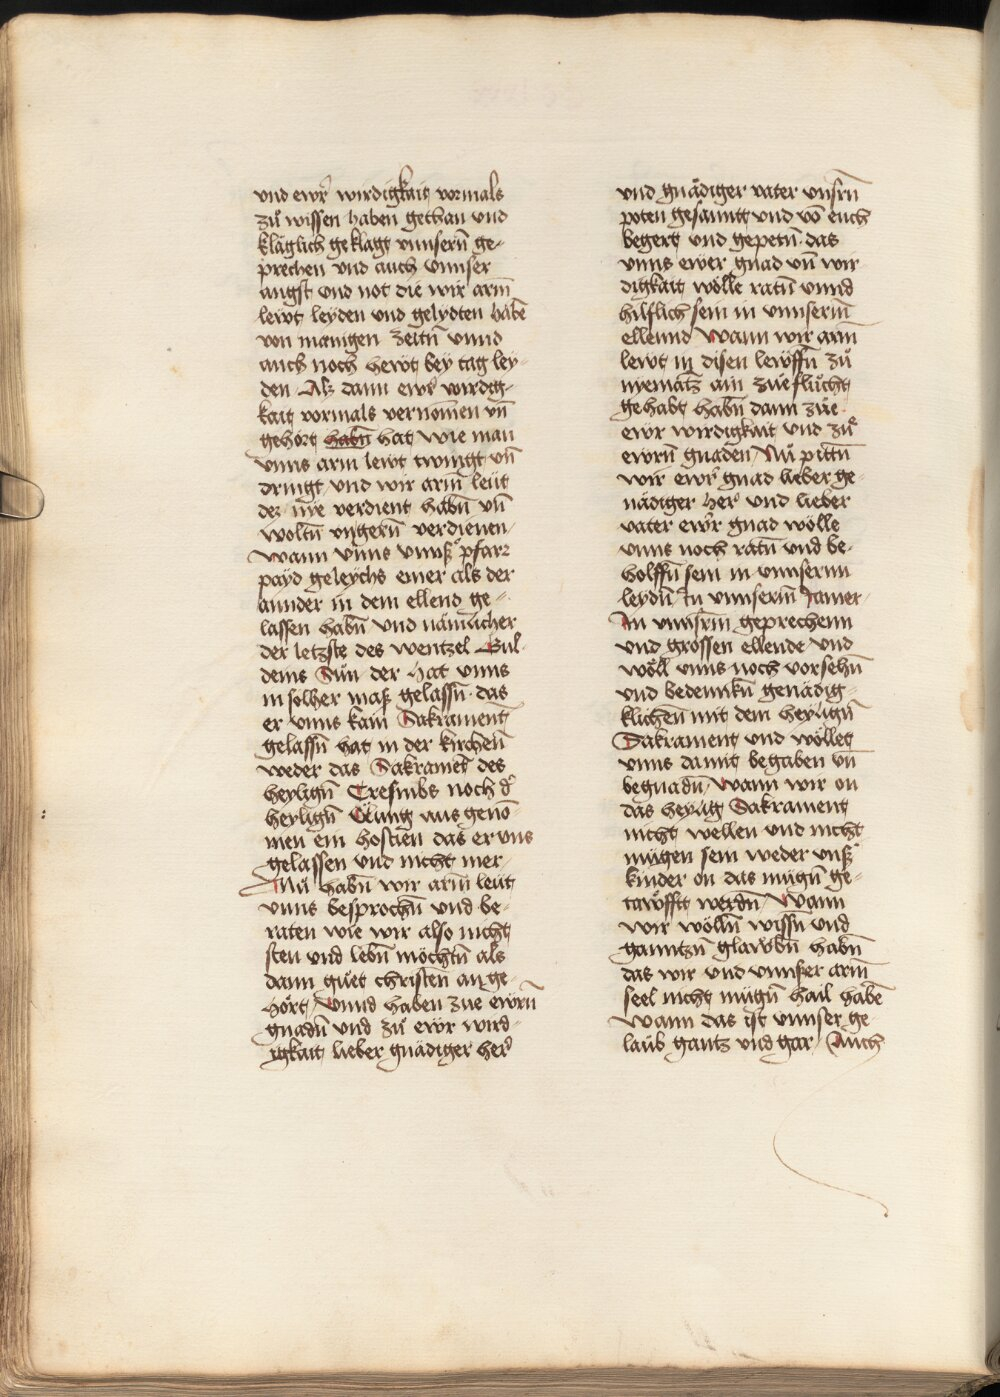 vnd ewr̄ wirdigkait vormals
zů wissen haben gethan vnd
kläglich geklagt vnnserñ ge-
prechen vnd auch vnnser
angst vnd not die wir arm̄
lewt leyden vnd gelydten habē
von manigen zeitñ vnnd
auch noch hewt bey tag ley-
den Alz dann ewr̄ wirdig-
kait vormals vernomēn vñ
gehört habñ hat wie man
vnns arm lewt twingt vñ
dringt vnd wir arm̄ leüt
dez nie verdient habñ vñ
woltñ vngerñ verdienen
wann vnns vnnß° pfarr
payd geleychs einer als der
annder in dem ellend ge-
lassen habñ vnd nämlicher
der letzste des wentzel Bul-
deins Sůn der hat vnns
in solher maß gelassñ das
er vnns kain Sakrament
gelassñ hat in der kirchen̄
weder das Sakramēt des
heyligñ Cresmbs noch d°
heyligñ Ölung aus genō-
men ein hostien das er vns
gelassen vnd nicht mer
Nů habñ wir arm̄ leüt
vnns besprochñ vnd be-
raten wie wir also nicht
sten vnd lebñ möchtñ als
dann gůet christen an ge-
hört Vnnd haben zue ewrñ
gnadñ vnd zů ewr wird-
igkait lieber gnädiger her°
vnd gnädiger vater vnsrñ
poten gesanntt vnd vō euch
begert vnd gepetñ das
vnns ewer gnad vñ wir-
digkait wölle ratñ vnnd
hilflich sein in vnnserm̄
ellennd Wann wir arm̄
lewt in disen lewffñ zů
nyematz ain zůeflücht
gehabt habñ dann zůe
ewr wirdigkait vnd zů
ewrñ gnaden Nů pittñ
wir ewr̄ gnad lieber ge-
nädiger her° vnd lieber
vater ewr̄ gnad wölle
vnns noch ratñ vnd be-
holffñ sein in vnnserm
leydñ In vnnserm̄ Jamer
In vnnsrm̄ geprechenn
vnd grossen ellende vnd
wöll vnns noch vorsehñ
vnd bedennkñ genädig-
klichen̄ mit dem heyligñ
Sakrament vnd wöllet
vnns damit begaben vñ
begnadñ Wann wir on
das heylig Sakrament
nicht wellen vnd nicht
mügen sein weder vnß°
kinder on das mügñ ge-
tawfftt werdñ Wann
wir wöllñ wissñ vnd
ganntzñ glawbñ habñ
das wir vnd vnnser arm̄
seel nicht mügñ hail habē
Wann das ist vnnser ge-
laub gantz vnd gar Auch